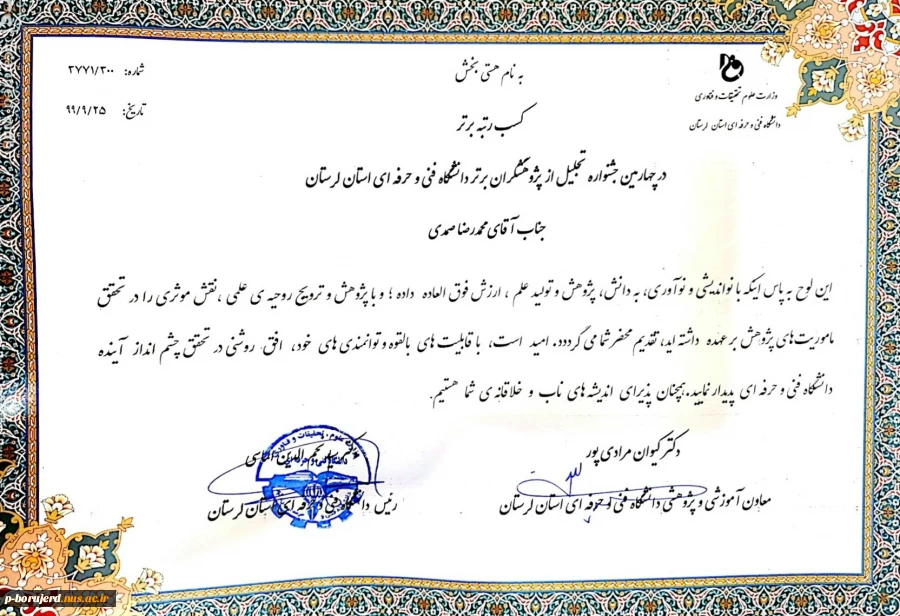 به نام هستی بخش
وزارت علوم تحقیقات و فناوری
دانشگاه فنی و حرفه ای استان لرستان
شماره: ۳۷۷۱/۳۰۰
تاریخ: ۹۹/۹/۲۵
کسب رتبه برتر
در چهارمین جشنواره تجلیل از پژوهشگران برتر دانشگاه فنی و حرفه ای استان لرستان
جناب آقای محمدرضا صمدی
این لوح به پاس اینکه با نواندیشی و نوآوری، به دانش، پژوهش و تولید علم ، ارزش فوق العاده داده ؛ و با پژوهش و ترویج روحیه ی علمی ، نقش موثری را در تحقق
ماموریت های پژوهش بر عهده داشته اید، تقدیم محضر شما می گرددد. امید است، با قابلیت های بالقوه و توانمندی های خود، افق روشنی در تحقق چشم انداز آینده
دانشگاه فنی و حرفه ای پدیدار نمایید. همچنان پذیرای اندیشه های ناب و خلاقانه ی شما هستیم.
دکتر کیوان مرادی پور
معاون آموزشی و پژوهشی دانشگاه فنی و حرفه ای استان لرستان
دکتر سید نجم الدین الماسی
رئیس دانشگاه فنی و حرفه ای استان لرستان
p-borujerd.nus.ac.ir